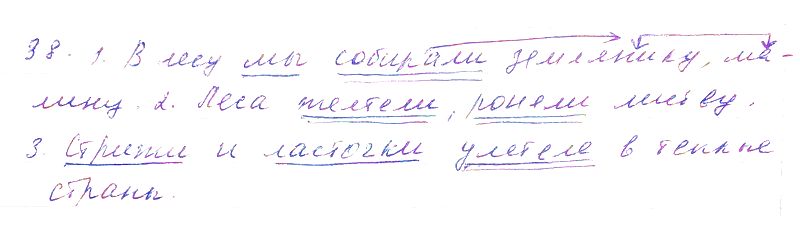 38. 1. В лесу мы собирали землянику, ма-
лину. 2. Леса желтели, роняли листву.
3. Стрижи и ласточки улетели в теплые
страны.